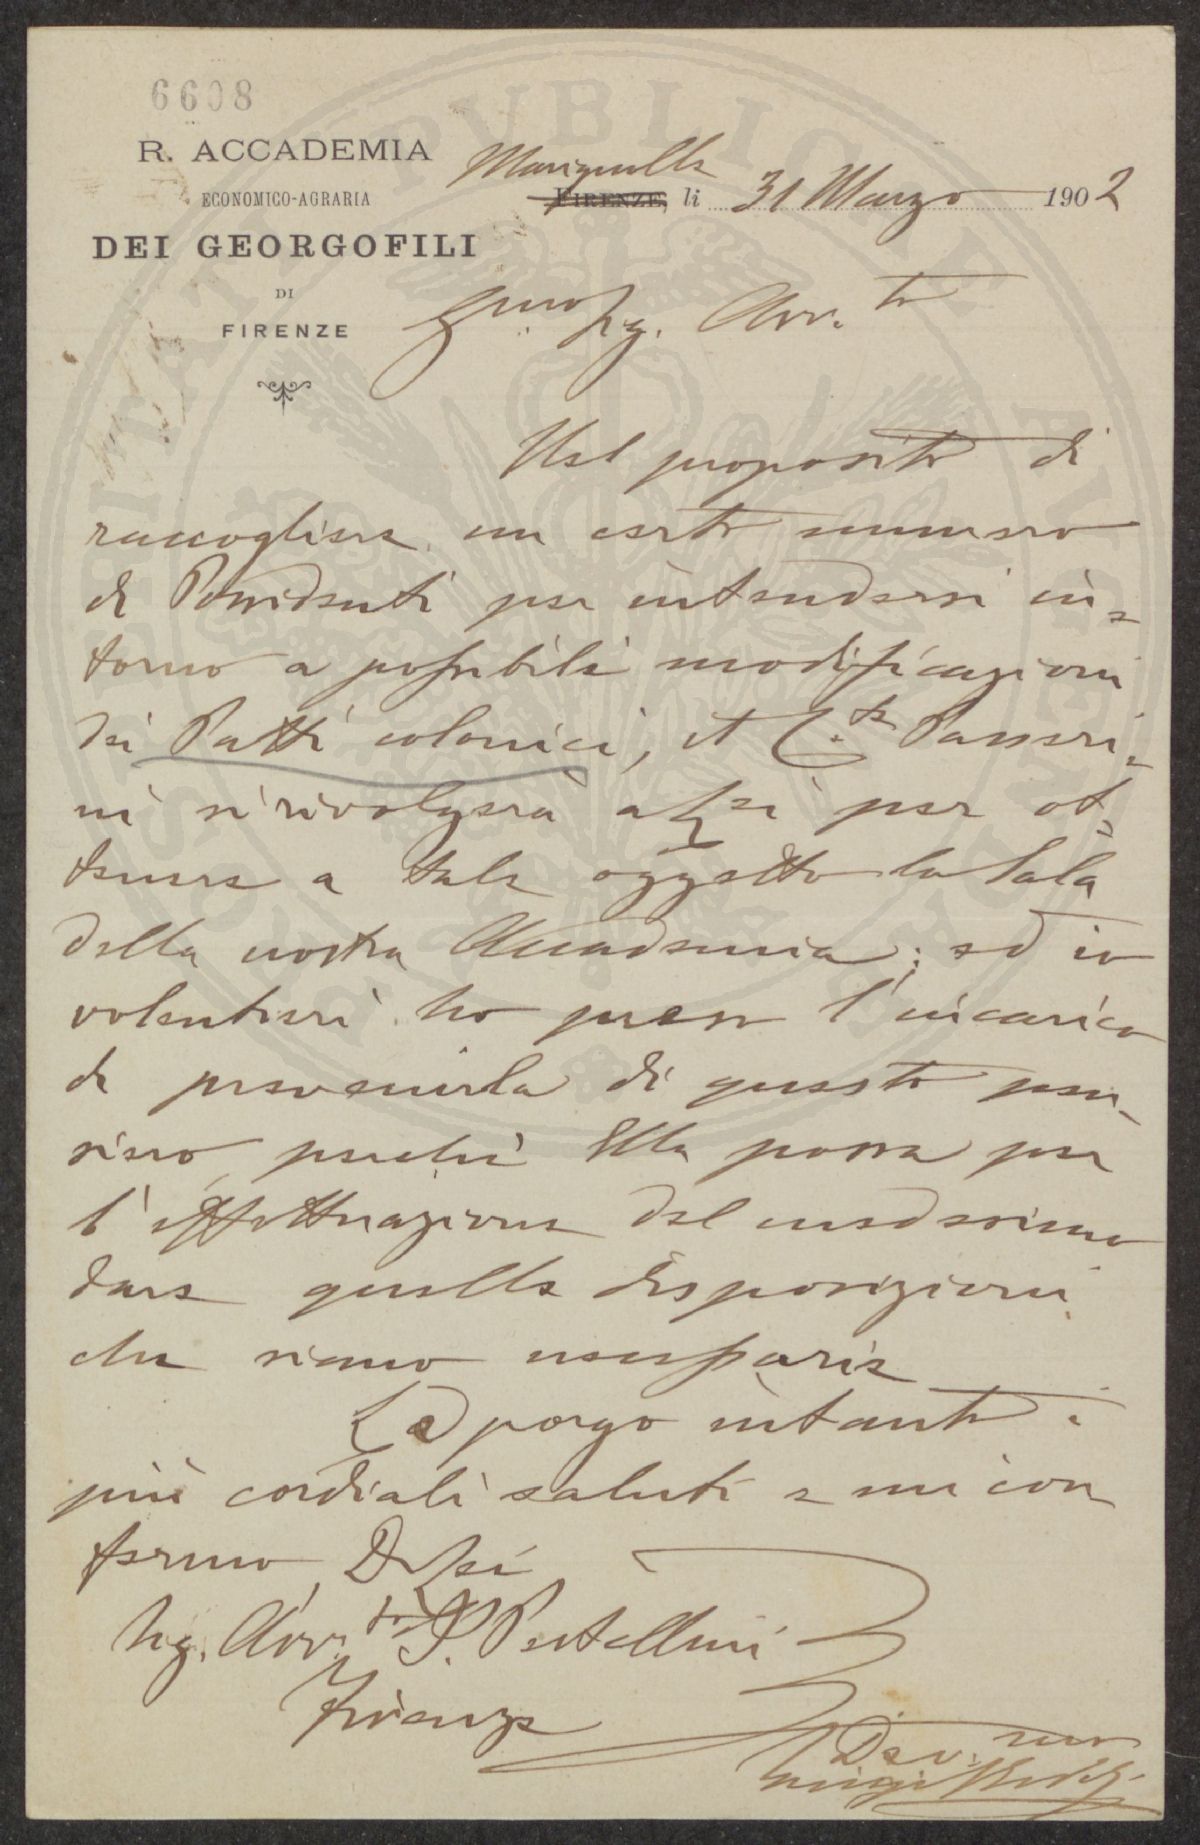 6608
R. ACCADEMIA
ECONOMICO-AGRARIA
DEI GEORGOFILI
DI
FIRENZE
Marignolle
FIRENZE, li 31 Marzo 1902
Sig. Avv.to
Nel proposito di
raccogliere un certo numero
di Possidenti per intendersi in=
torno a possibili modificazioni
dei Patti colonici, il C.te Passeri=
ni si rivolgerà a Lei per ot=
tenere a tale oggetto la Sala
della nostra Accademia; ed io
volentieri ho preso l'incarico
di prevenirla di questo pen=
siero perché Ella possa per
l'effettuazione del medesimo
dare quelle disposizioni
che siano necessarie
Le porgo intanto i
più cordiali saluti e mi con
fermo Di Lei
Sig. Avv.to P. Pestellini
Firenze
Dev.mo
Luigi Ridolfi
PROSPERITATI PVBLICAE AVGENDAE